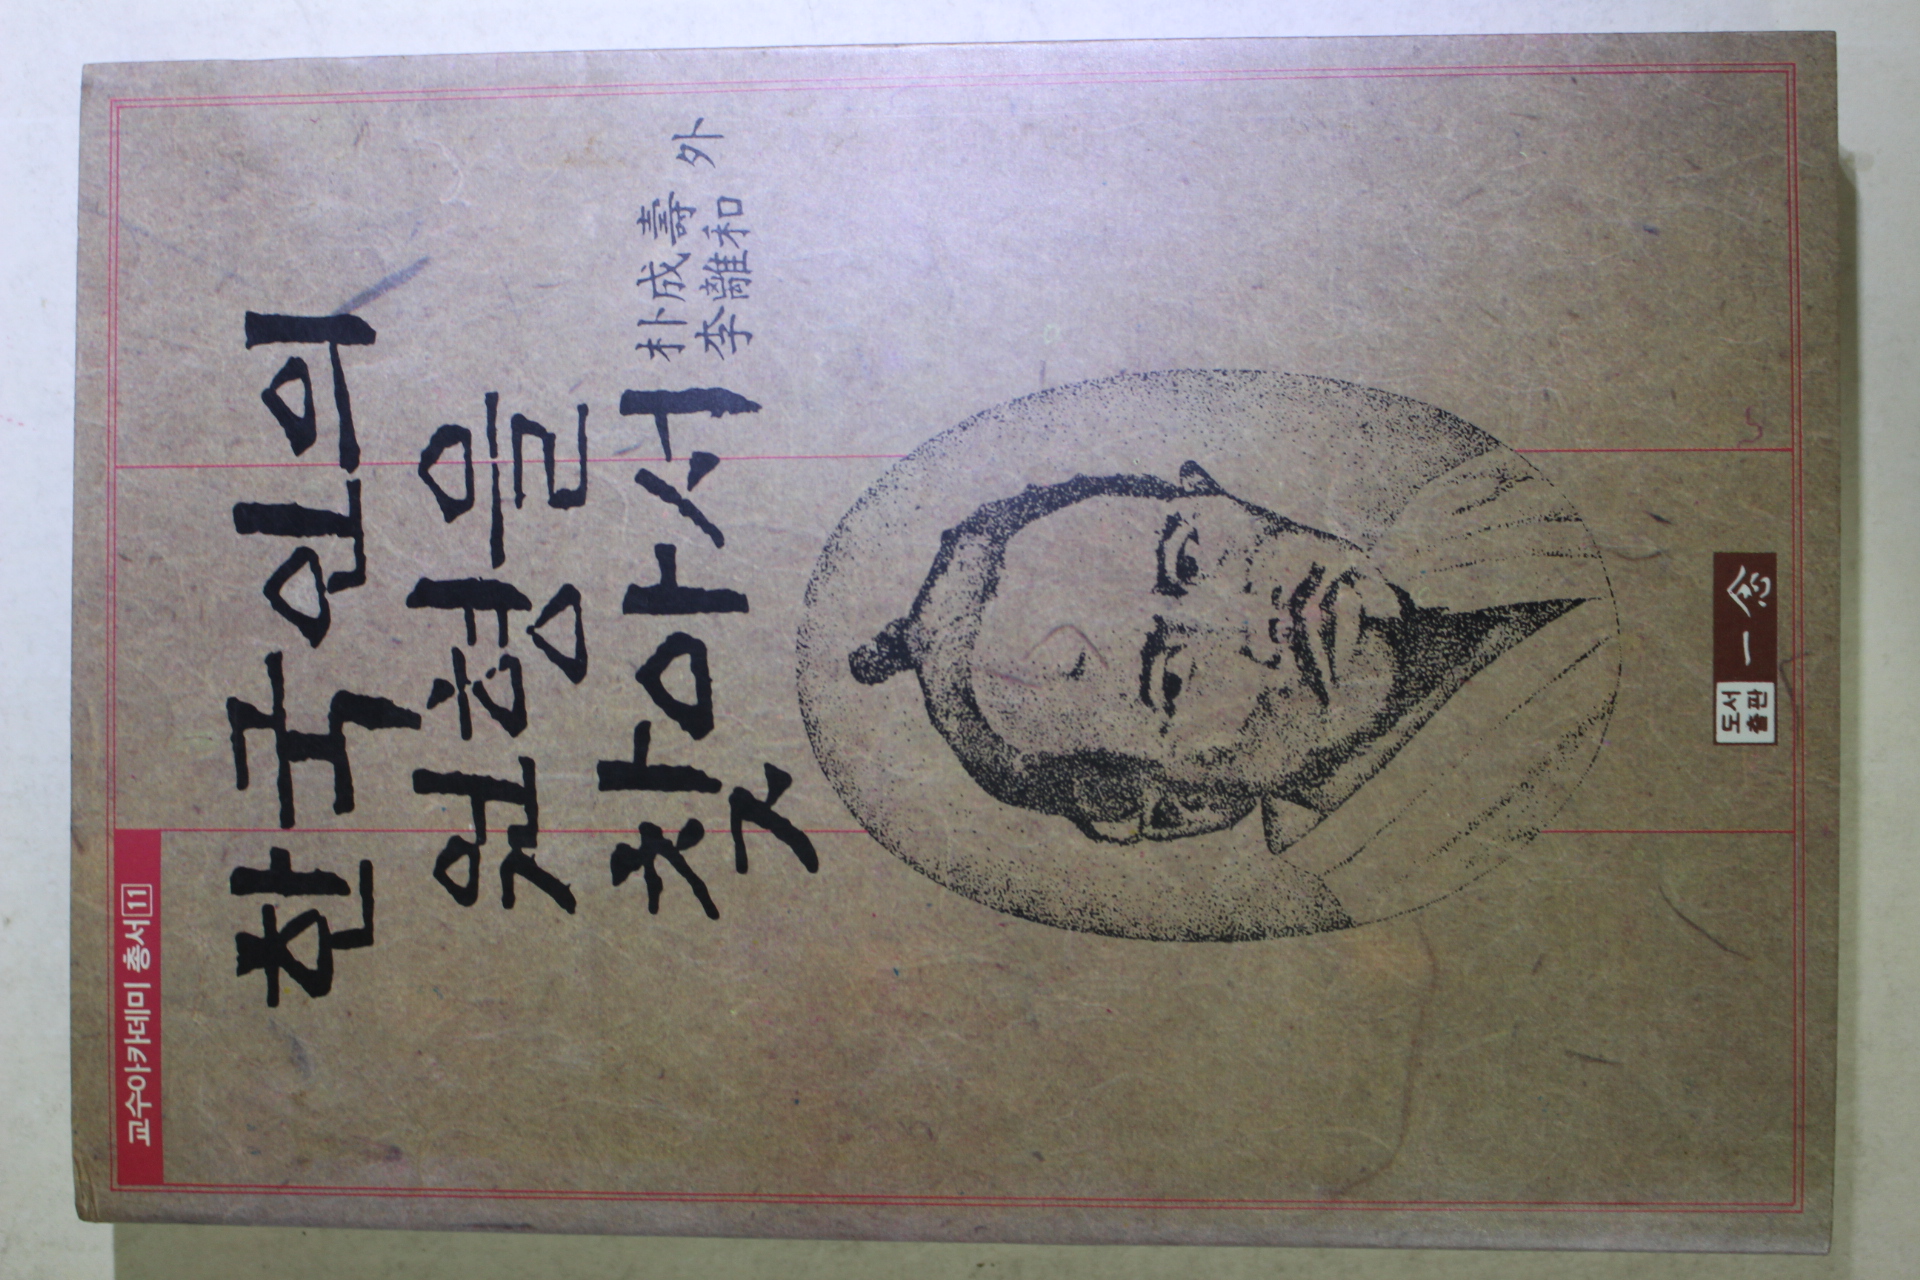 교수아카데미 총서 11
한국인의
원형을
찾아서
朴成壽
李離和 外
도서
출판
一念